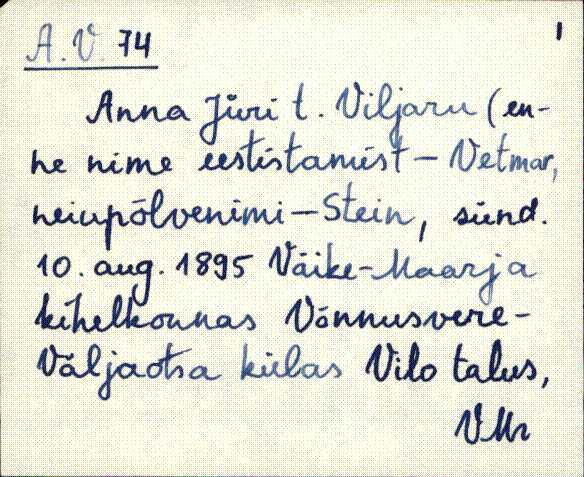 A.V. 74
1
Anna Jüri t. Viljaru (en-
ne nime eestistamist – Vetmar,
neiupõlvenimi – Stein, sünd.
10. aug. 1895 Väike-Maarja
kihelkonnas Võnnusvere-
Väljaotsa külas Vilo talus,
VMr